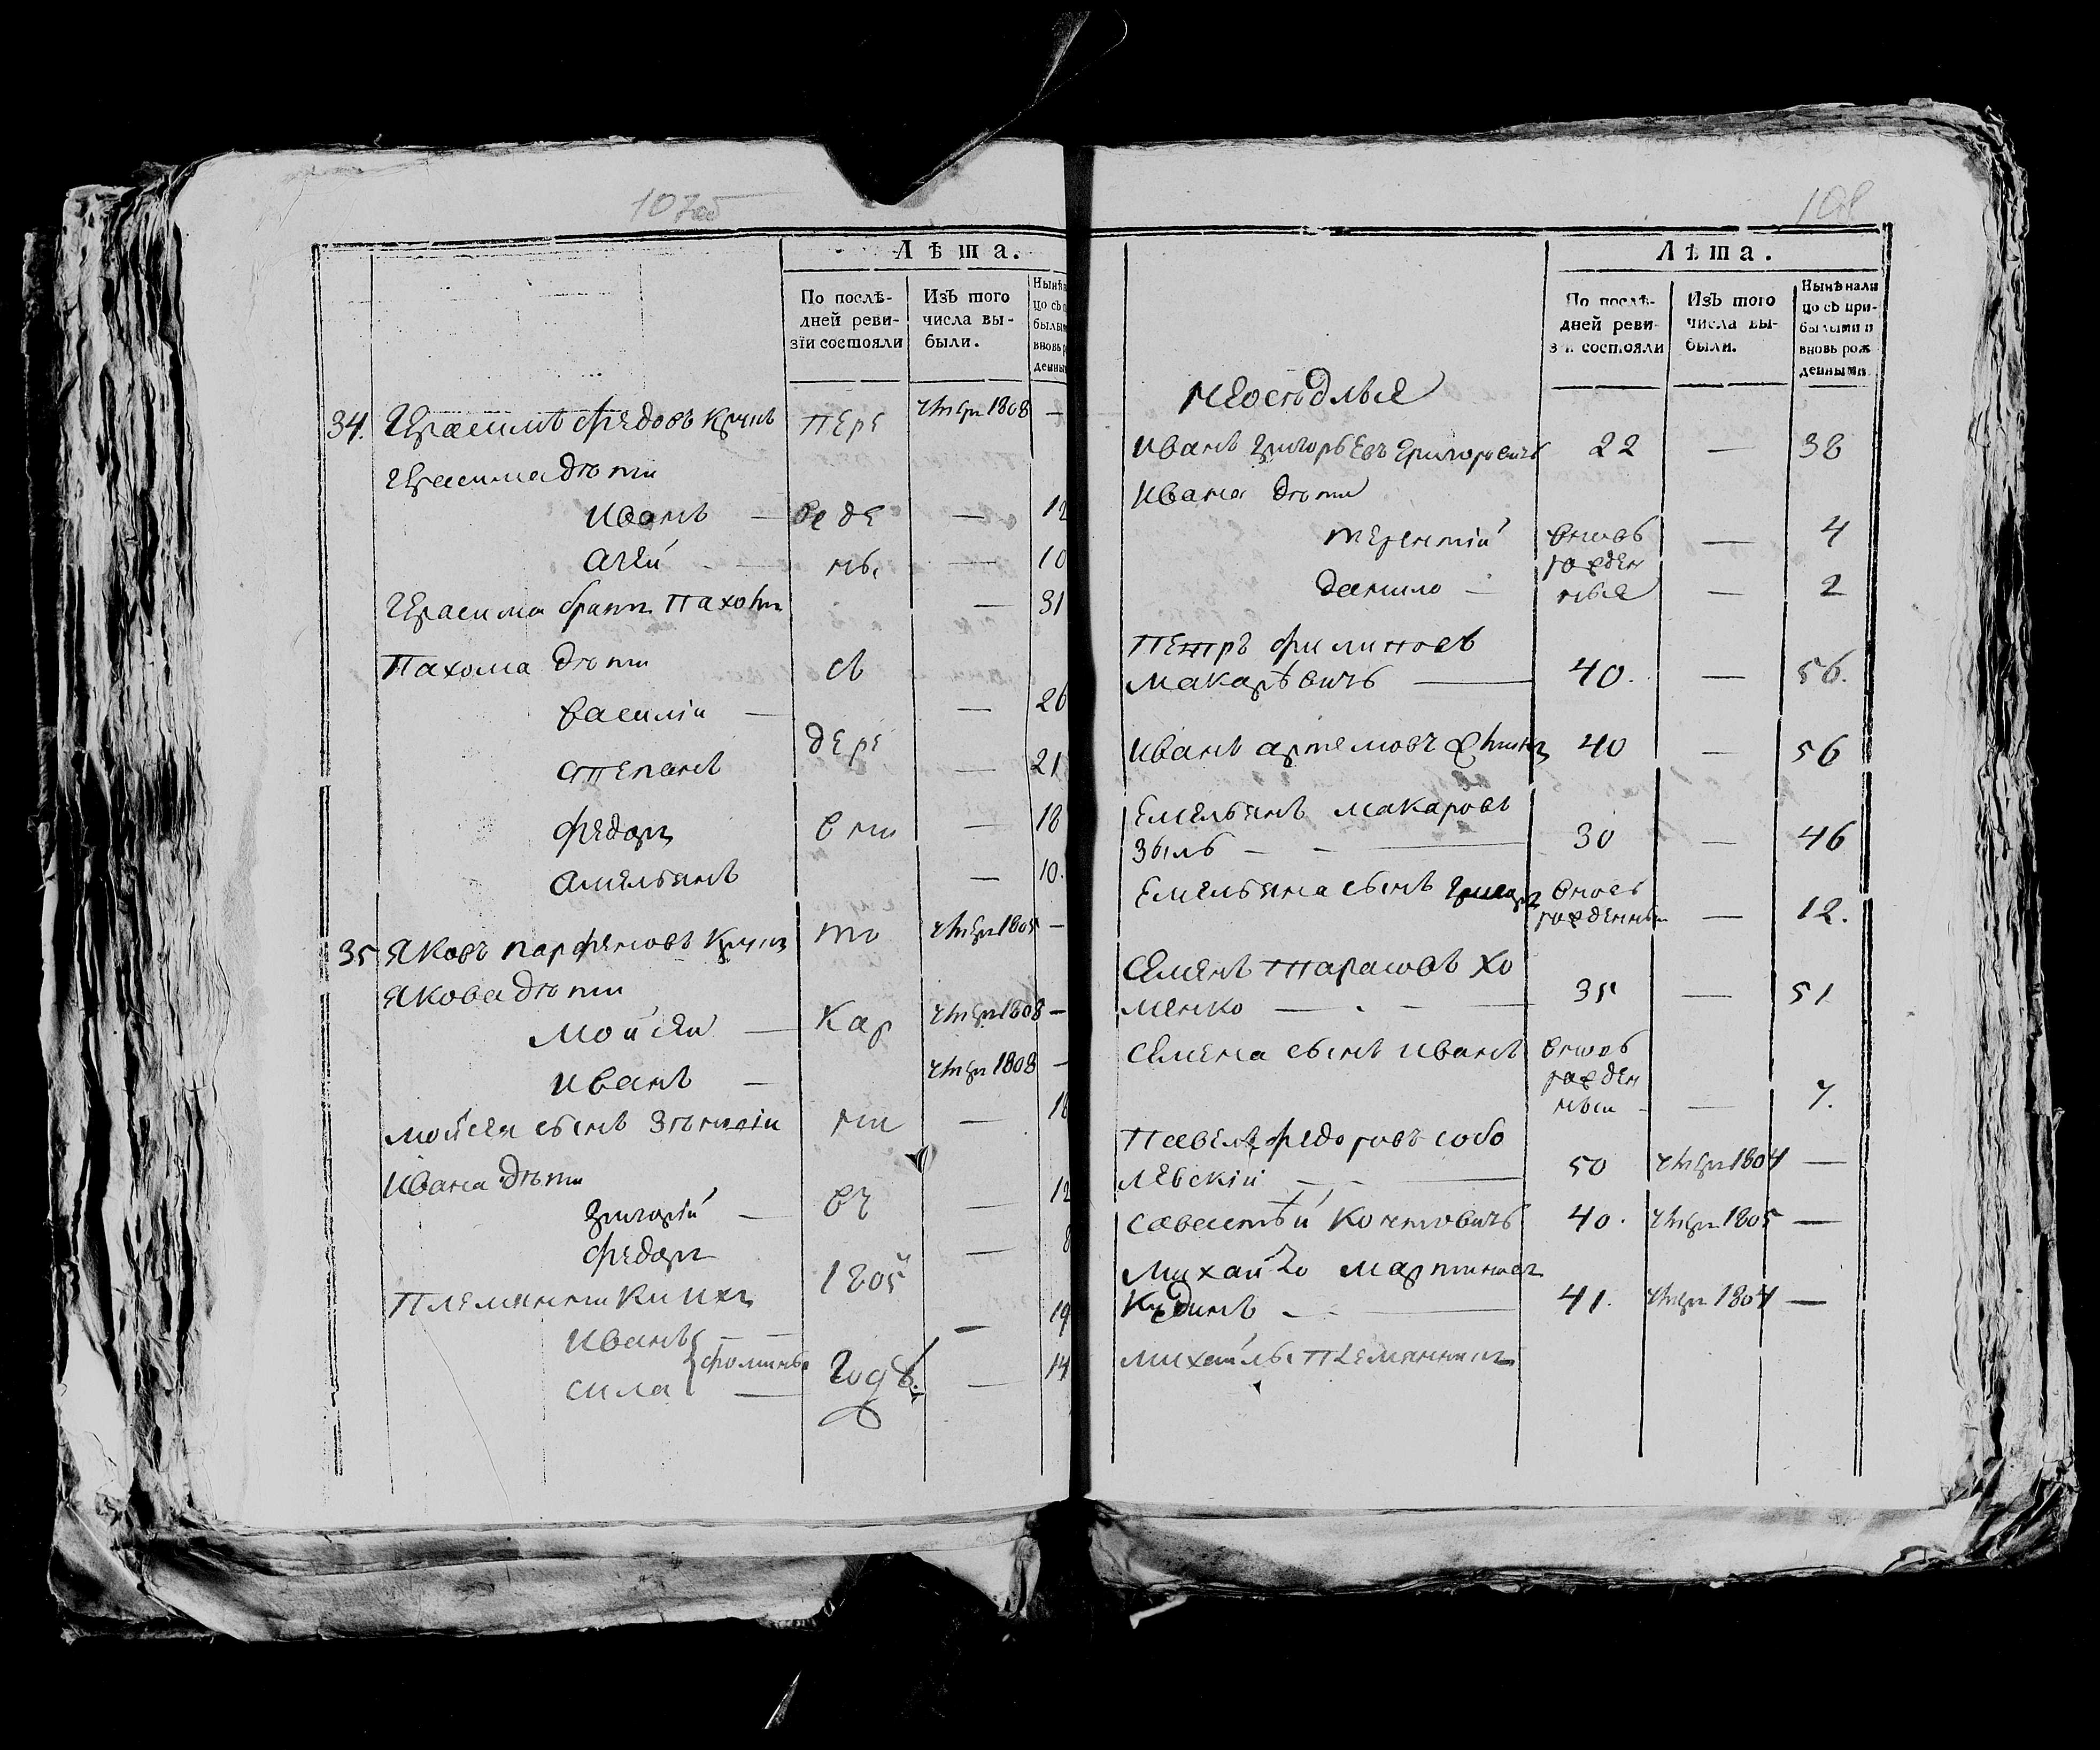 107об
Лѣта.
По послѣ-
дней реви-
зїи состояли
Изъ того
числа вы-
были.
34. Герасимъ Федовъ
пере
умер 1808 —
Герасима дѣти
Иванъ — веде — 12
Агей — ны — 10
Герасима братъ Пахомъ — 31
Пахома дѣти съ
Василіи — — 26
дере
Степанъ — 21
Федоръ вни — 18
Амельянъ — 10.
35 Яковъ Парфеновъ
то умер 1805 —
Якова дѣти
Мойсей — Кар умер 1808 —
Иванъ — умер 1808 —
Мойсея сынъ Зѣновіи ни — 18
Ивана дѣти
Григорій — въ — 12
Федоръ — 8
1805
Племянники ихъ
Иванъ — — 19
Фомины
Сила — годѣ. — 14
108
Лѣта.
По послѣ-
дней реви-
зїи состояли
Изъ того
числа вы-
были.
Нынѣ нали
цо съ при-
былыми и
вновь рож
денными
Неоседлые
Иванъ Григорьевъ Григоровичъ 22 — 38
Ивана дѣти
Терентій вновь — 4
рожден
Данило — ные — 2
Петръ Филиповъ
Макарѣвичъ — 40. — 56.
Иванъ Артемовъ 40 — 56
Емельянъ Макаровъ
Зыль — — 30 — 46
Емельяна сынъ вновь
рожденный — 12.
Семенъ Тарасовъ Хо
менко — — 35 — 51
Семена сынъ Иванъ вновь
рожден
ный — — 7.
Павелъ Федоровъ Собо
левскій — 50 умер 1804 —
Савастѣй 40. умер 1805 —
Михайло Мартиновъ
41. умер 1804 —
Михайлы племянникъ